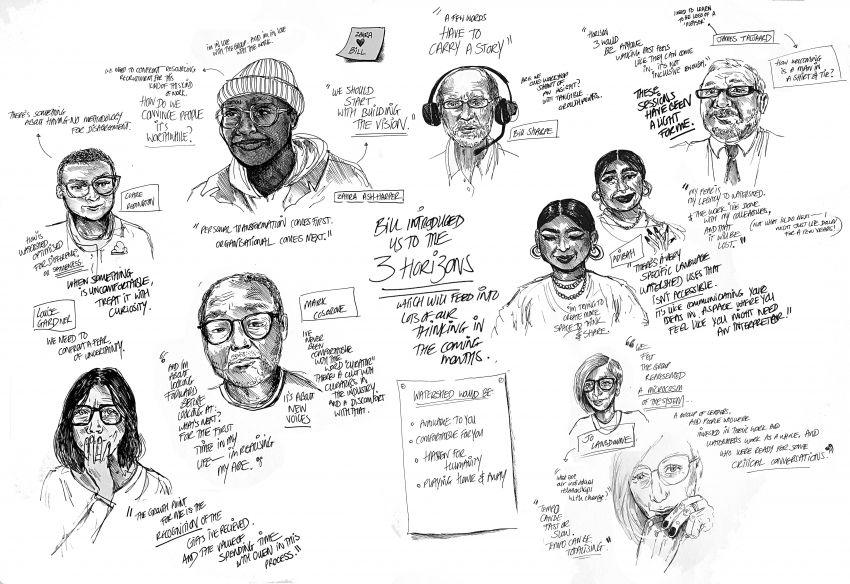 I'm in love
with the group. And I'm in love
with the work.
ZAHRA
BILL
"A FEW WORDS
HAVE TO
CARRY A STORY"
"HORIZON
3 WOULD
BE ANYONE
WALKING PAST FEELS
LIKE THEY CAN COME
IN. IT'S NOT
INCLUSIVE ENOUGH."
I NEED TO LEARN
TO BE LESS OF A
JAMES TAIJAARD
HOW WELCOMING
IS A MAN IN
A SHIRT & TIE?
WE NEED TO CONFRONT RESOURCING
RECRUITMENT FOR THIS
KIND OF THIS KIND
OF WORK.
HOW DO WE
CONVINCE PEOPLE
IT'S
WORTHWHILE?
"WE SHOULD
START
WITH BUILDING
THE VISION."
ARE WE
ONE WORKSHOP
SHORT OF
AN INSIGHT?
WITH TANGIBLE
BILL SHARPE
THESE
SESSIONS
HAVE BEEN
A LIGHT
FOR ME.
THERE'S SOMETHING
ABOUT HAVING NO METHODOLOGY
FOR DISAGREEMENT.
CLARE
REDDINGTON
ZAHRA ASH-HARPER
"PERSONAL TRANSFORMATION COMES FIRST.
ORGANISATIONAL COMES NEXT."
HOW IS
WATERSHED
OPTIMISED
FOR DIFFERENCE,
OR SAMENESS.
WHEN SOMETHING
IS UNCOMFORTABLE,
TREAT IT WITH
CURIOSITY.
BILL INTRODUCED
US TO THE
3 HORIZONS
WHICH WILL FEED INTO
LOTS OF OUR
THINKING IN
THE COMING
MONTHS.
"MY FEAR IS
MY LEGACY TO WATERSHED.
& THE WORK I'VE DONE
WITH MY COLLEAGUES,
AND THAT
IT WILL BE
LOST."
(NOT THAT I'LL DO THAT - I
MIGHT JUST LIE DOWN
FOR A FEW YEARS!)
ADIBAH
"THERE'S A VERY
SPECIFIC LANGUAGE
WATERSHED USES THAT
ISN'T ACCESSIBLE.
IT'S LIKE COMMUNICATING YOUR
IDEAS IN A SPACE WHERE YOU
FEEL LIKE YOU MIGHT NEED
AN INTERPRETER!"
"I'M TRYING TO
CREATE MORE
SPACE TO THINK
& SHARE.
LOUISE
GARDNER
WE NEED TO
CONFRONT A FEAR,
OF UNCERTAINTY.
MARK
COSGROVE
I'VE
NEVER
BEEN
COMFORTABLE
WITH THE
WORD "CURATOR"
THERE'S A CULT WITH
CURATORS IN
THE INDUSTRY.
AND A DISCOMFORT
WITH THAT.
"AND I'M
ABOUT
LOOKING
FORWARD
BEFORE
LOOKING AT:
WHAT'S NEXT?
FOR THE FIRST
TIME IN MY
LIFE — I'M REALISING
MY AGE."
IT'S ABOUT
NEW
VOICES
WATERSHED WOULD BE:
AVAILABLE TO YOU
COMFORTABLE FOR YOU
HAVEN FOR
HUMANITY
PLAYING HOME & AWAY
"WE
FELT
THE GROUP
REPRESENTED
A MICROCOSM
OF THE SYSTEM...
JO
LANSDOWNE
A GROUP OF LEADERS,
AND PEOPLE WHO WERE
INVESTED IN THEIR WORK AND
WATERSHED'S WORK AS A WHOLE, AND
WHO WERE READY FOR SOME
CRITICAL CONVERSATIONS."
"What are
our individual
relationships
with change?"
"TEMPO
CAN BE
FAST OR
SLOW.
TEMPO CAN BE
TOTALISING."
"THE GROWTH POINT
FOR ME IS THE
RECOGNITION OF THE
GIFTS I'VE RECIEVED.
AND THE VALUE OF
SPENDING TIME
WITH OWEN IN THIS
PROCESS."